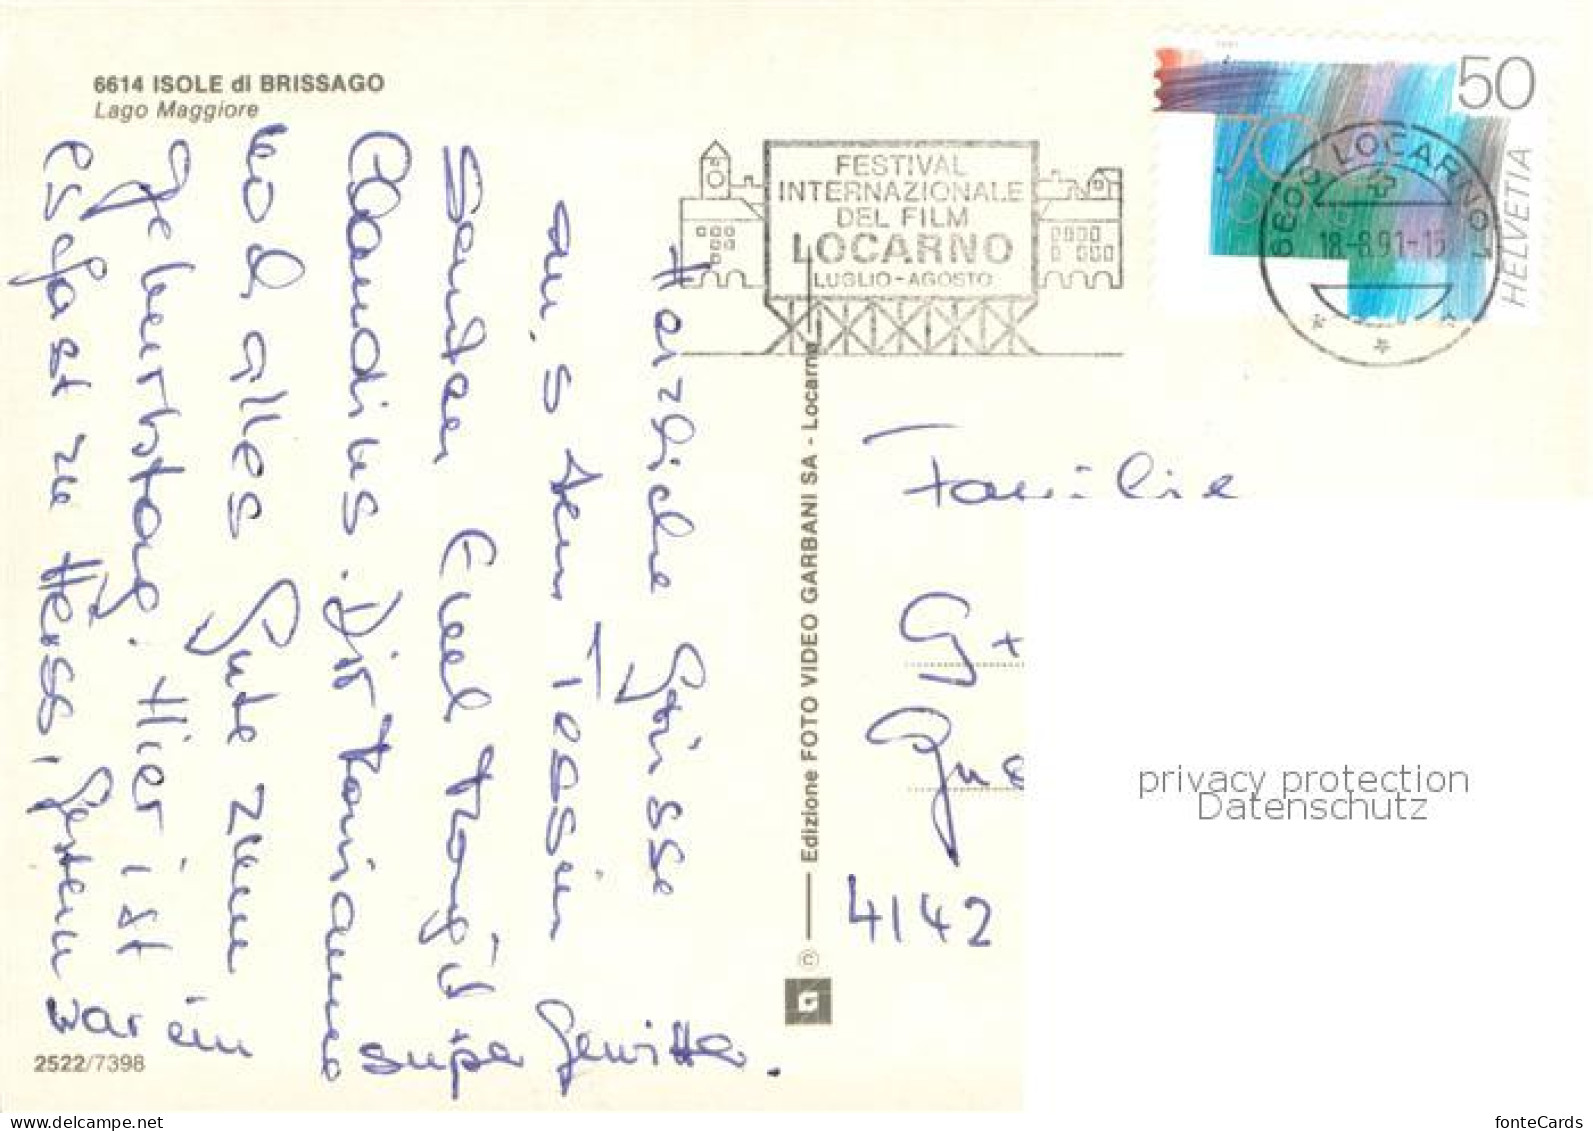 6614 ISOLE di BRISSAGO
Lago Maggiore
FESTIVAL
INTERNAZIONALE
DEL FILM
LOCARNO
LUGLIO-AGOSTO
50
70
HELVETIA
6600 LOCARNO 1
18-8.91-15
Herzliche Grüsse
aus dem Tessin
senden Euch
Claudius. Dir Marianne
und alles Gute zum
Geburtstag. Hier ist
es fast zu Heiss, gestern
war ein super Gewitter.
Edizione FOTO VIDEO GARBANI SA - Locarno
©
Familie
4142
2522/7398
privacy protection
Datenschutz
fonteCards